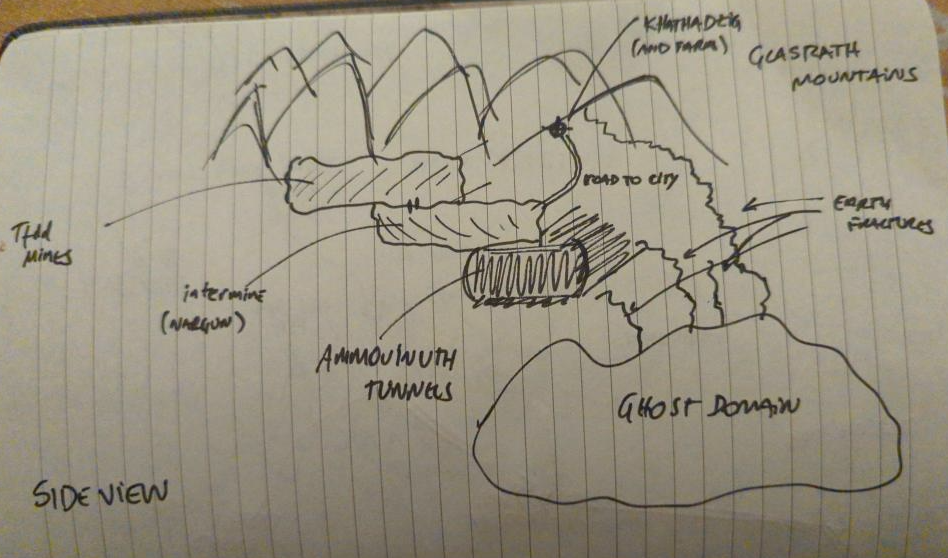 (AND FARM)
GLASRATH
MOUNTAINS
ROAD TO CITY
EARTH
FRACTURES
MINES
intermine
(NARGUN)
AMMOUINUTH
TUNNELS
GHOST DOMAIN
SIDE VIEW